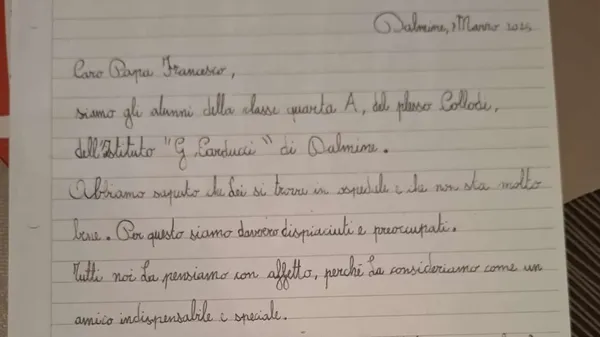 Dalmine, Marzo 2025
Caro Papa Francesco,
siamo gli alunni della classe quarta A, del plesso Collodi,
dell'Istituto "G. Carducci" di Dalmine.
Abbiamo saputo che Lei si trova in ospedale e che non sta molto
bene. Per questo siamo davvero dispiaciuti e preoccupati.
Tutti noi La pensiamo con affetto, perché La consideriamo come un
amico indispensabile e speciale.